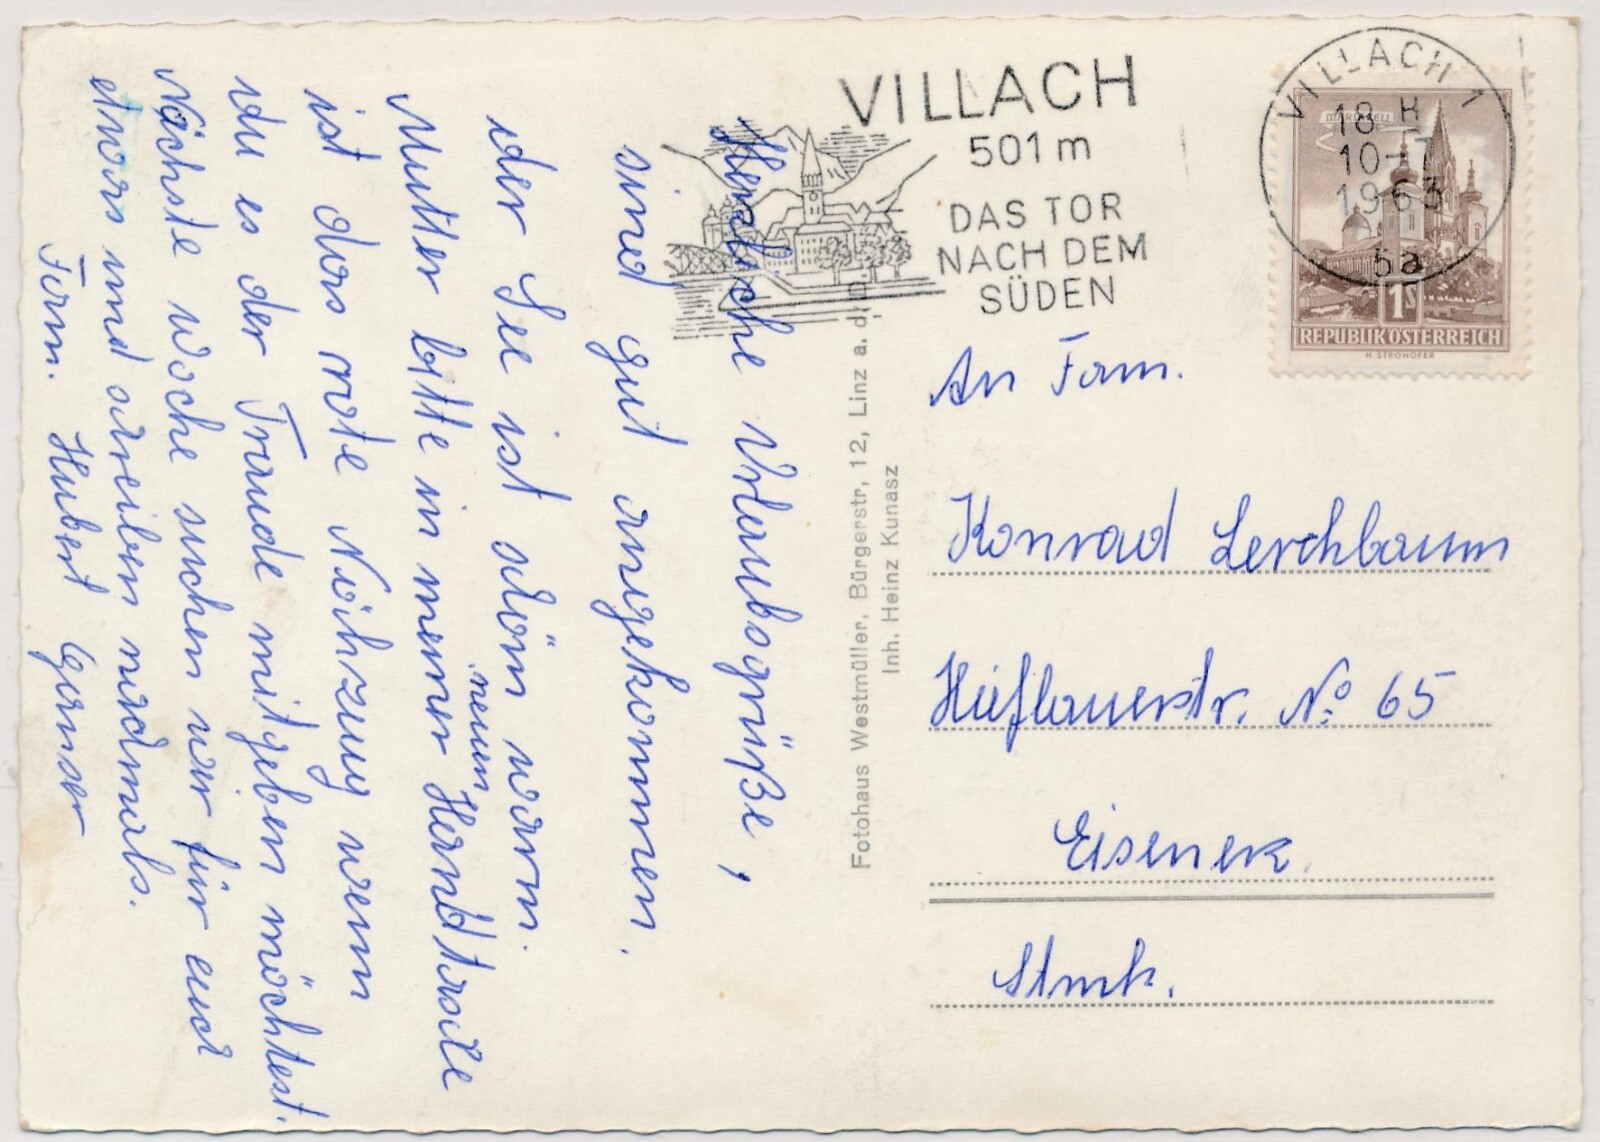 Herzliche Urlaubsgrüße,
sind gut angekommen.
der See ist schön warm.
Mutter bitte in meiner neuen Handtasche
ist das rote Nähzeug wenn
du es der Traude mitgeben möchtest.
Nächste Woche suchen wir für euch
etwas und schreiben nochmals.
Fam. Hubert
VILLACH
501 m
DAS TOR
NACH DEM
SÜDEN
VILLACH 1
18-H
10-7
1963
5a
MARIAZELL
1S
REPUBLIK ÖSTERREICH
H. STROHOFER
Fotohaus Westmüller, Bürgerstr, 12, Linz a. d. D.
Inh. Heinz Kunasz
An Fam.
Konrad Lerchbaum
Hieflauerstr. No 65
Eisenerz.
Stmk.